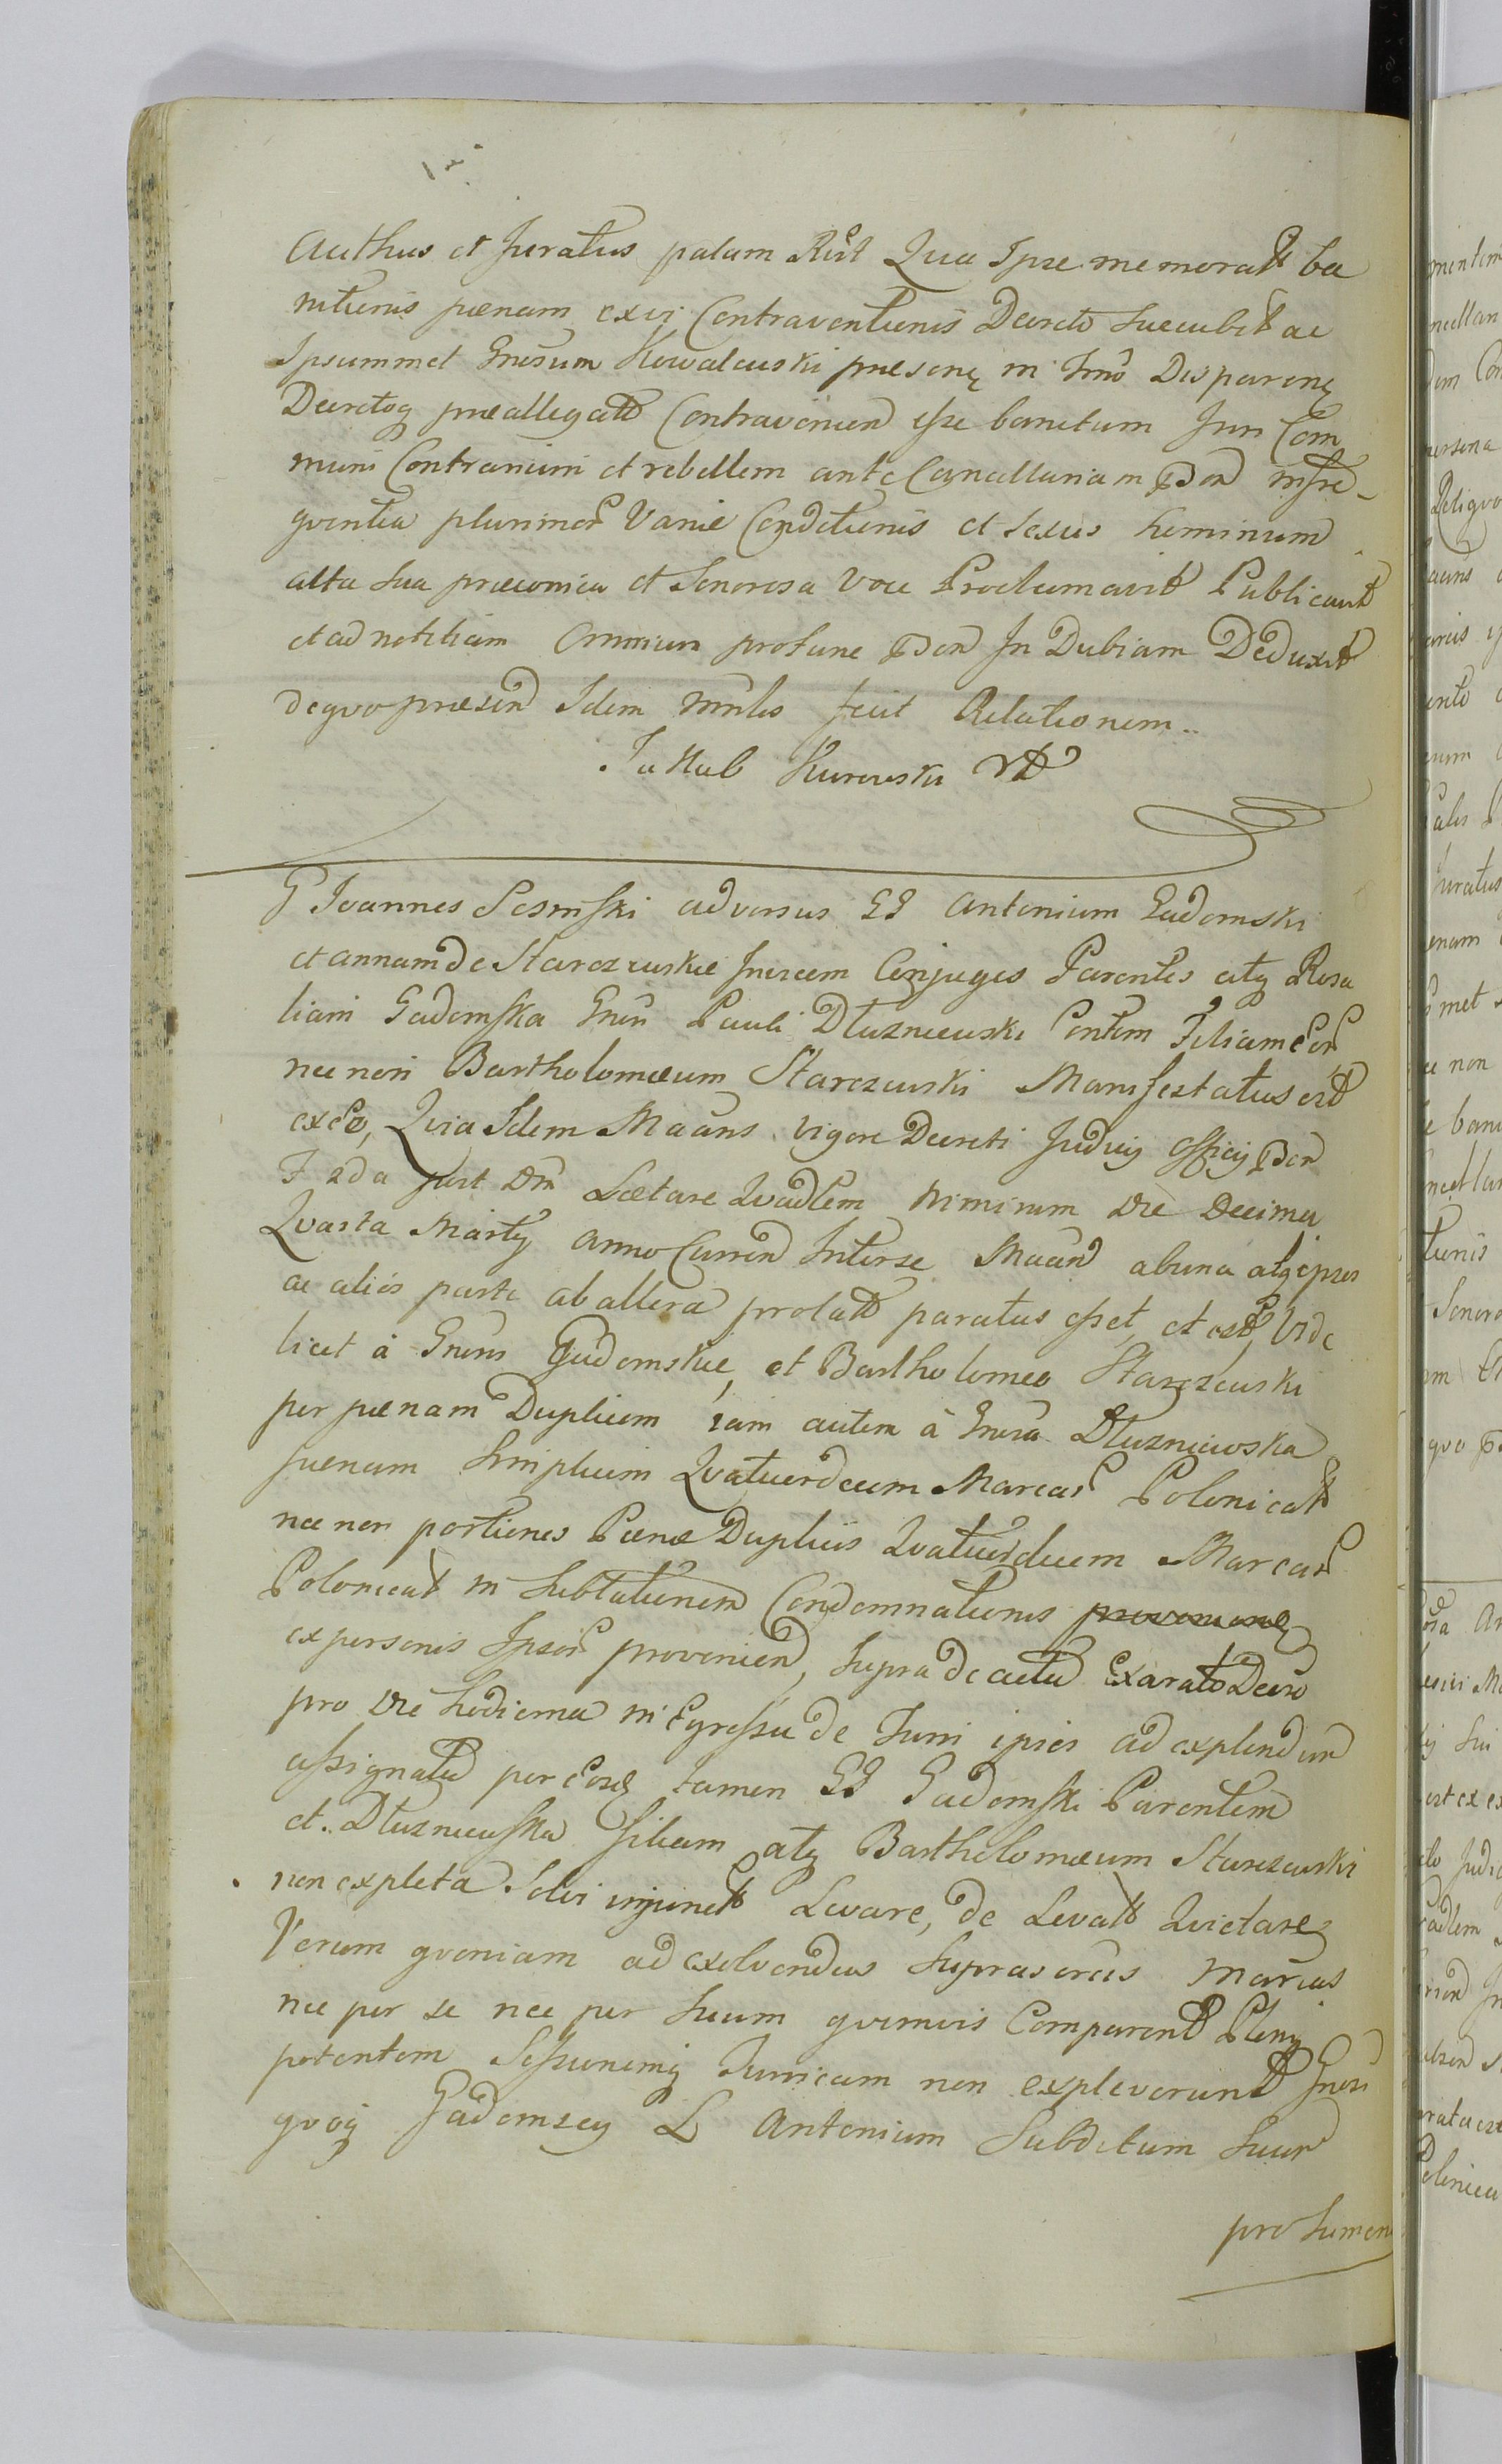 Authus et Juratus palam Rłt Qua Ipse memoratt ba
nitionis pœnam ex vi Contraventionis Decreto Succubit ac
Ipsummet Gnosum Kowalewski præsenz in Trno Disparenz
Decretoq præallegatt Contravenien esse banitum Juri Com
muni Contrarium et rebellem ante Cancellariam pñ in fre-
quentia plurimor Variæ Conditionis et Sexus hominum
alta Sua præconica et Sonorosa Voce Proclamavit Publicavit
et ad notitiam Omnium Deduxit
de quo præsen Idem Mnlis fecit Relationem..
Jakub Kurowski
G Joannes Sosnfski adversus GG Antonium Gadomski
et Annam de Starczewskie Invicem Conjuges Parentes atq Rosa
liam Gadomska Gnosi Pauli Dłuzniewski Contem Filiam Eor
nec non Bartholomæum Starczewski Manifestatus est
ex eo, Quia Idem Maāns vigore Decreti Judicij Officij
F 2da post Dm Lætare Quadlem nimirum die Decima
Quarta Martij Anno Curren Inter se Maan ab una atq ipsos
ac alios parte ab altera prolatt paratus esset, et est, Vide
licet à Gnosis Gadomskie, et Bartholomeo Starczewski
per pœnam Duplicem iam autem à Gnosa Dłuzniewska
pœnam Simplicem Quatuordecim Marcar Polonicatt
nec non portiones Pœnæ Duplicis Quatuordecem Marcar
Polonicat in Sublationem Condemnationis
ex personis Ipsor provenien, Supra de actu Exarato Decro
pro die hodierna in Egressu de Turri ipsos ad explendum
assignatu per Eosq tamen GG Gadomski Parentem
et. Dłuzniewska filiam atq Bartholomæum Starczewski
non expleta Solvi injunctt Levare, de Levatt Quietare
Verum quoniam ad exolvendas Suprascrias marcas
nec per se nec per Suum quemvis Comparent Pleni
potentem Sessionemq Turricam non expleverunt Gnosi
quoq Gadomscy L Antonium Subditum Suum
pro Sumen